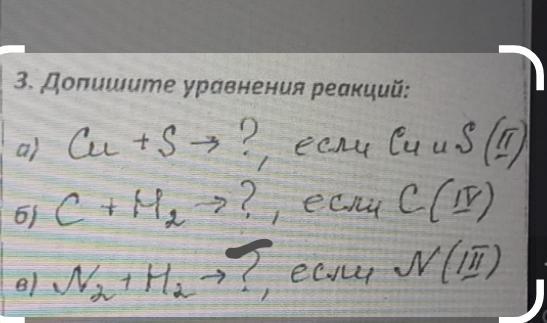 3. Допишите уравнения реакций:
а) Cu + S → ?, если Cu и S (II)
б) C + H₂ → ?, если C (IV)
в) N₂ + H₂ → ?, если N (III)